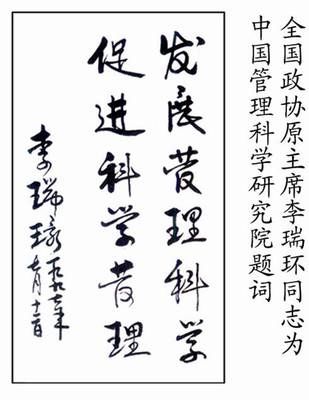 全国政协原主席李瑞环同志为
中国管理科学研究院题词
发展管理科学
促进科学管理
李瑞环